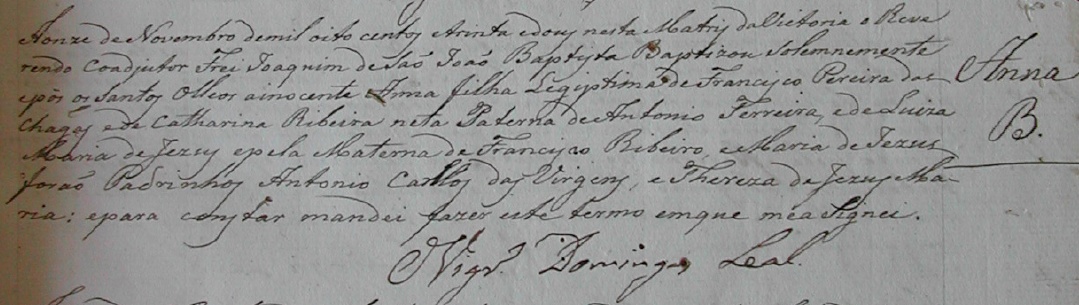 Aonze de Novembro demil oito centos etrinta edous nesta Matris daVictoria o Reve
rendo Coadjutor Frei Joaquim de São João Baptista Baptizou Solemnemente
epôs os Santos Olleos ainocente Anna filha Legiptima de Francisco Pereira das
Chagas ede Catharina Ribeira neta Paterna de Antonio Ferreira, ede Luiza
Maria de Jezus epela Materna de Francisco Ribeiro, e Maria de Jezus
forão Padrinhos Antonio Carllos das Virgens, e Thereza de Jezus Ma-
ria: epara constar mandei fazer este termo emque meaSignei.
Anna
B.
Vigr.º Domingos Leal.